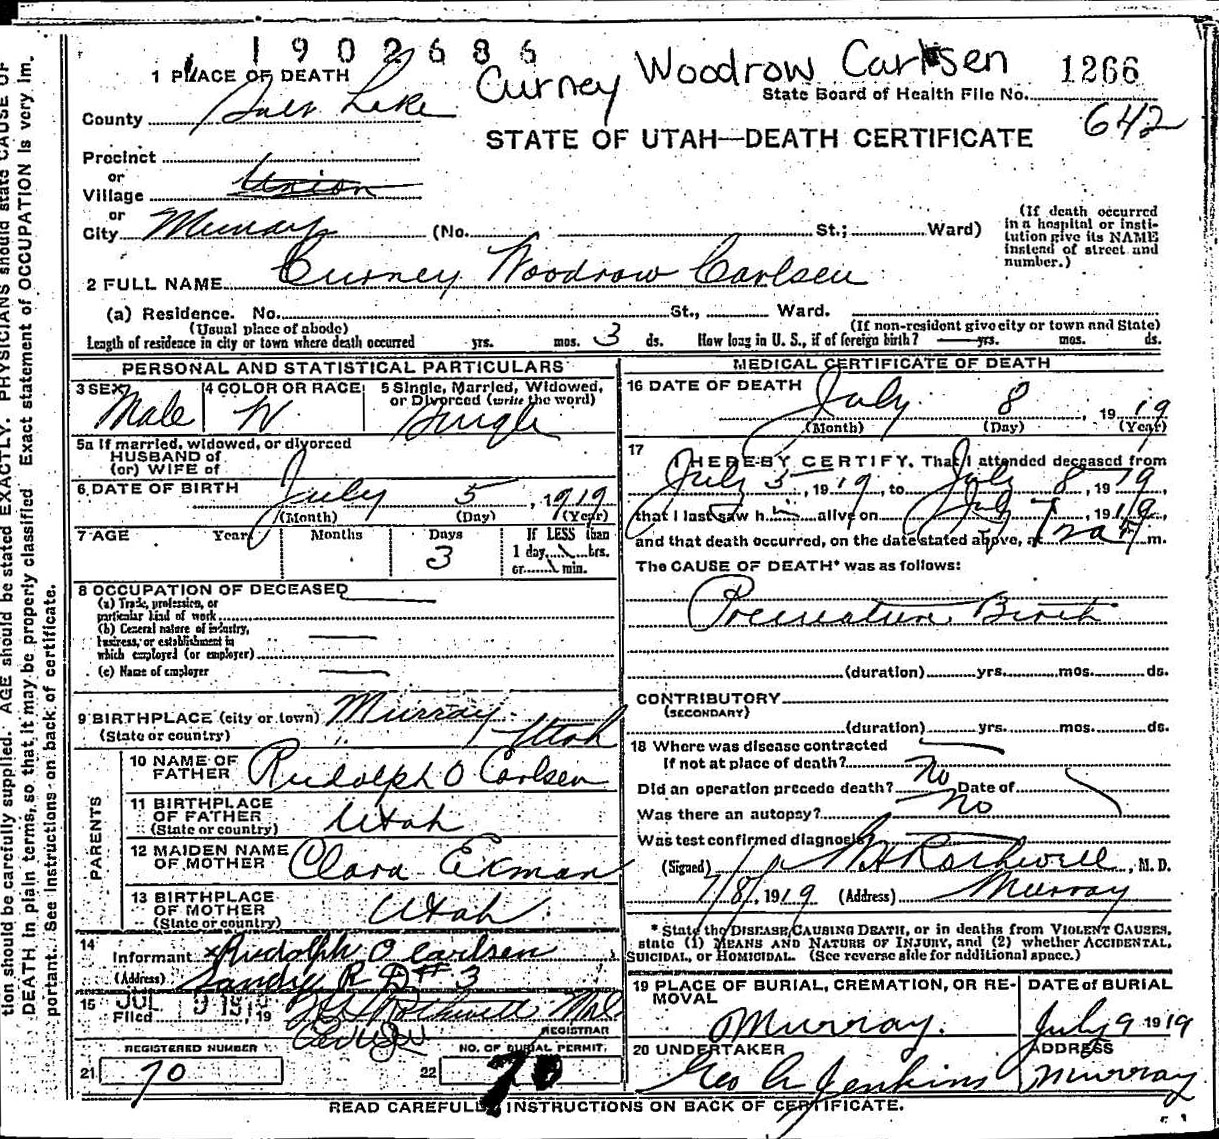 1902686
Curney Woodrow Carlsen
1266
1 PLACE OF DEATH
State Board of Health File No.
642
County Salt Lake
STATE OF UTAH—DEATH CERTIFICATE
Precinct
or
Village Union
or
City Murray (No. St.; Ward)
(If death occurred
in a hospital or insti-
tution give its NAME
instead of street and
number.)
2 FULL NAME Curney Woodrow Carlsen
(a) Residence. No. St., Ward.
(Usual place of abode) (If non-resident give city or town and State)
Length of residence in city or town where death occurred yrs. mos. 3 ds. How long in U. S., if of foreign birth? yrs. mos. ds.
PERSONAL AND STATISTICAL PARTICULARS
3 SEX
Male
4 COLOR OR RACE
W
5 Single, Married, Widowed,
or Divorced (write the word)
Single
5a If married, widowed, or divorced
HUSBAND of
(or) WIFE of
6 DATE OF BIRTH July 5, 1919
(Month) (Day) (Year)
7 AGE Years Months Days If LESS than
3
1 day, hrs.
or min.
8 OCCUPATION OF DECEASED
(a) Trade, profession, or
particular kind of work
(b) General nature of industry,
business, or establishment in
which employed (or employer)
(c) Name of employer
9 BIRTHPLACE (city or town) Murray
(State or country) Utah
PARENTS
10 NAME OF
FATHER Rudolph O Carlsen
11 BIRTHPLACE
OF FATHER
(State or country) Utah
12 MAIDEN NAME
OF MOTHER Clara Ekman
13 BIRTHPLACE
OF MOTHER
(State or country) Utah
14
Informant Rudolph O Carlsen
(Address) Sandy R D # 3
15 JUL 9 1919
Filed , 19
REGISTRAR
REGISTERED NUMBER
NO. OF BURIAL PERMIT.
21 70
22 70
MEDICAL CERTIFICATE OF DEATH
16 DATE OF DEATH July 8, 1919
(Month) (Day) (Year)
17
I HEREBY CERTIFY, That I attended deceased from
July 5, 1919, to July 8, 1919
that I last saw h i alive on July , 1919,
and that death occurred, on the date stated above, at m.
The CAUSE OF DEATH* was as follows:
Premature Birth
(duration) yrs. mos. ds.
CONTRIBUTORY
(SECONDARY)
(duration) yrs. mos. ds.
18 Where was disease contracted
If not at place of death?
Did an operation precede death? No Date of
Was there an autopsy? No
Was test confirmed diagnosis
(Signed) Rothwell, M. D.
7/8, 1919 (Address) Murray
* State the DISEASE CAUSING DEATH, or in deaths from VIOLENT CAUSES,
state (1) MEANS AND NATURE OF INJURY, and (2) whether ACCIDENTAL,
SUICIDAL, or HOMICIDAL. (See reverse side for additional space.)
19 PLACE OF BURIAL, CREMATION, OR RE-
MOVAL
Murray.
DATE of BURIAL
July 9 1919
20 UNDERTAKER
Geo A Jenkins
ADDRESS
Murray
READ CAREFULLY INSTRUCTIONS ON BACK OF CERTIFICATE.
tion should be carefully supplied. AGE should be stated EXACTLY. PHYSICIANS should state CAUSE OF
DEATH in plain terms, so that it may be properly classified. Exact statement of OCCUPATION is very im-
portant. See Instructions on back of certificate.